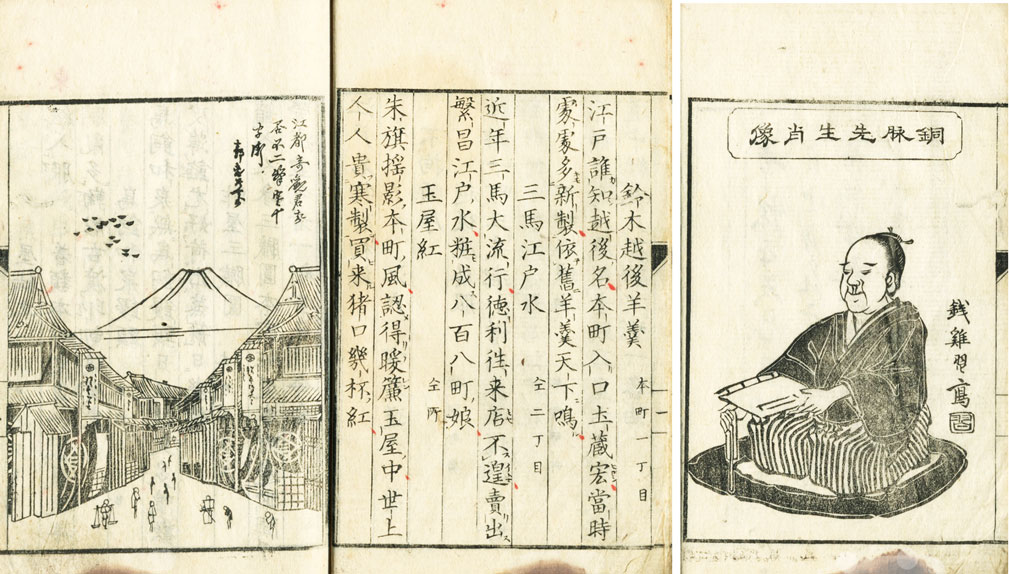 銅脉先生肖像
錢雞
寫
鈴木越後羊羹 本町一丁目
江戸誰知越後名本町入口土蔵宏當時
處處多新製依舊羊羹天下鳴
三馬江戸水 仝二丁目
近年三馬大流行德利徃来店不遑賣出
繁昌江戸水粧成八百八町娘
玉屋紅 仝所
朱旗揺影本町風認得暖簾玉屋中世上
人人貴寒製買来猪口幾杯紅
江都